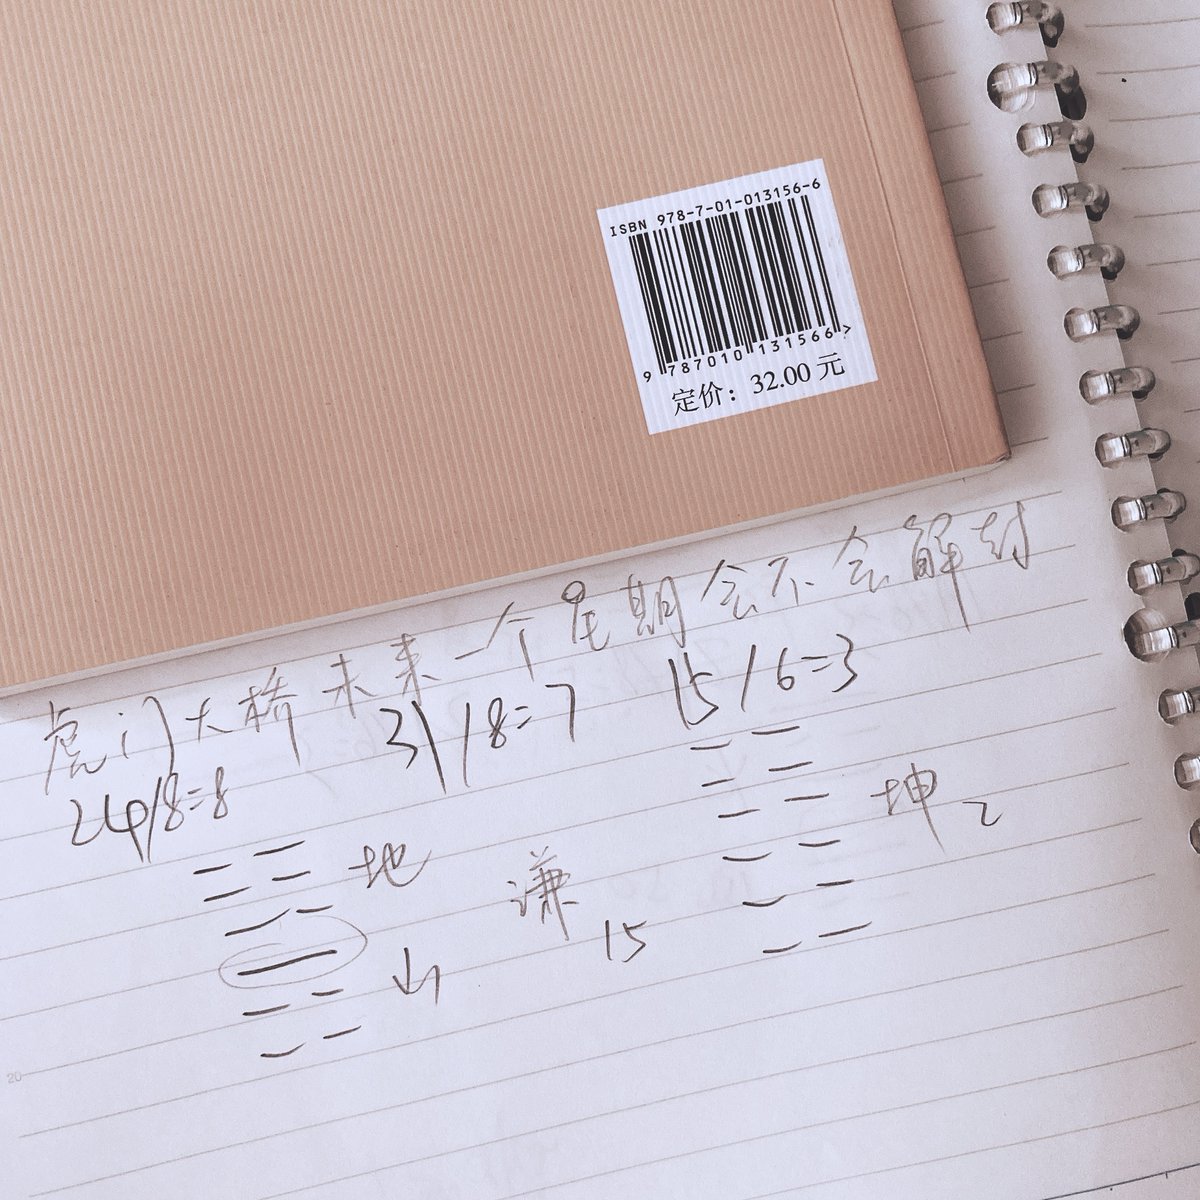 ISBN 978-7-01-013156-6
9 787010 131566 >
定价：32.00 元
虎门大桥未来一个星期会不会解封
24/8=8 31/8=7 15/6=3
地 谦 15 坤 2
山
20